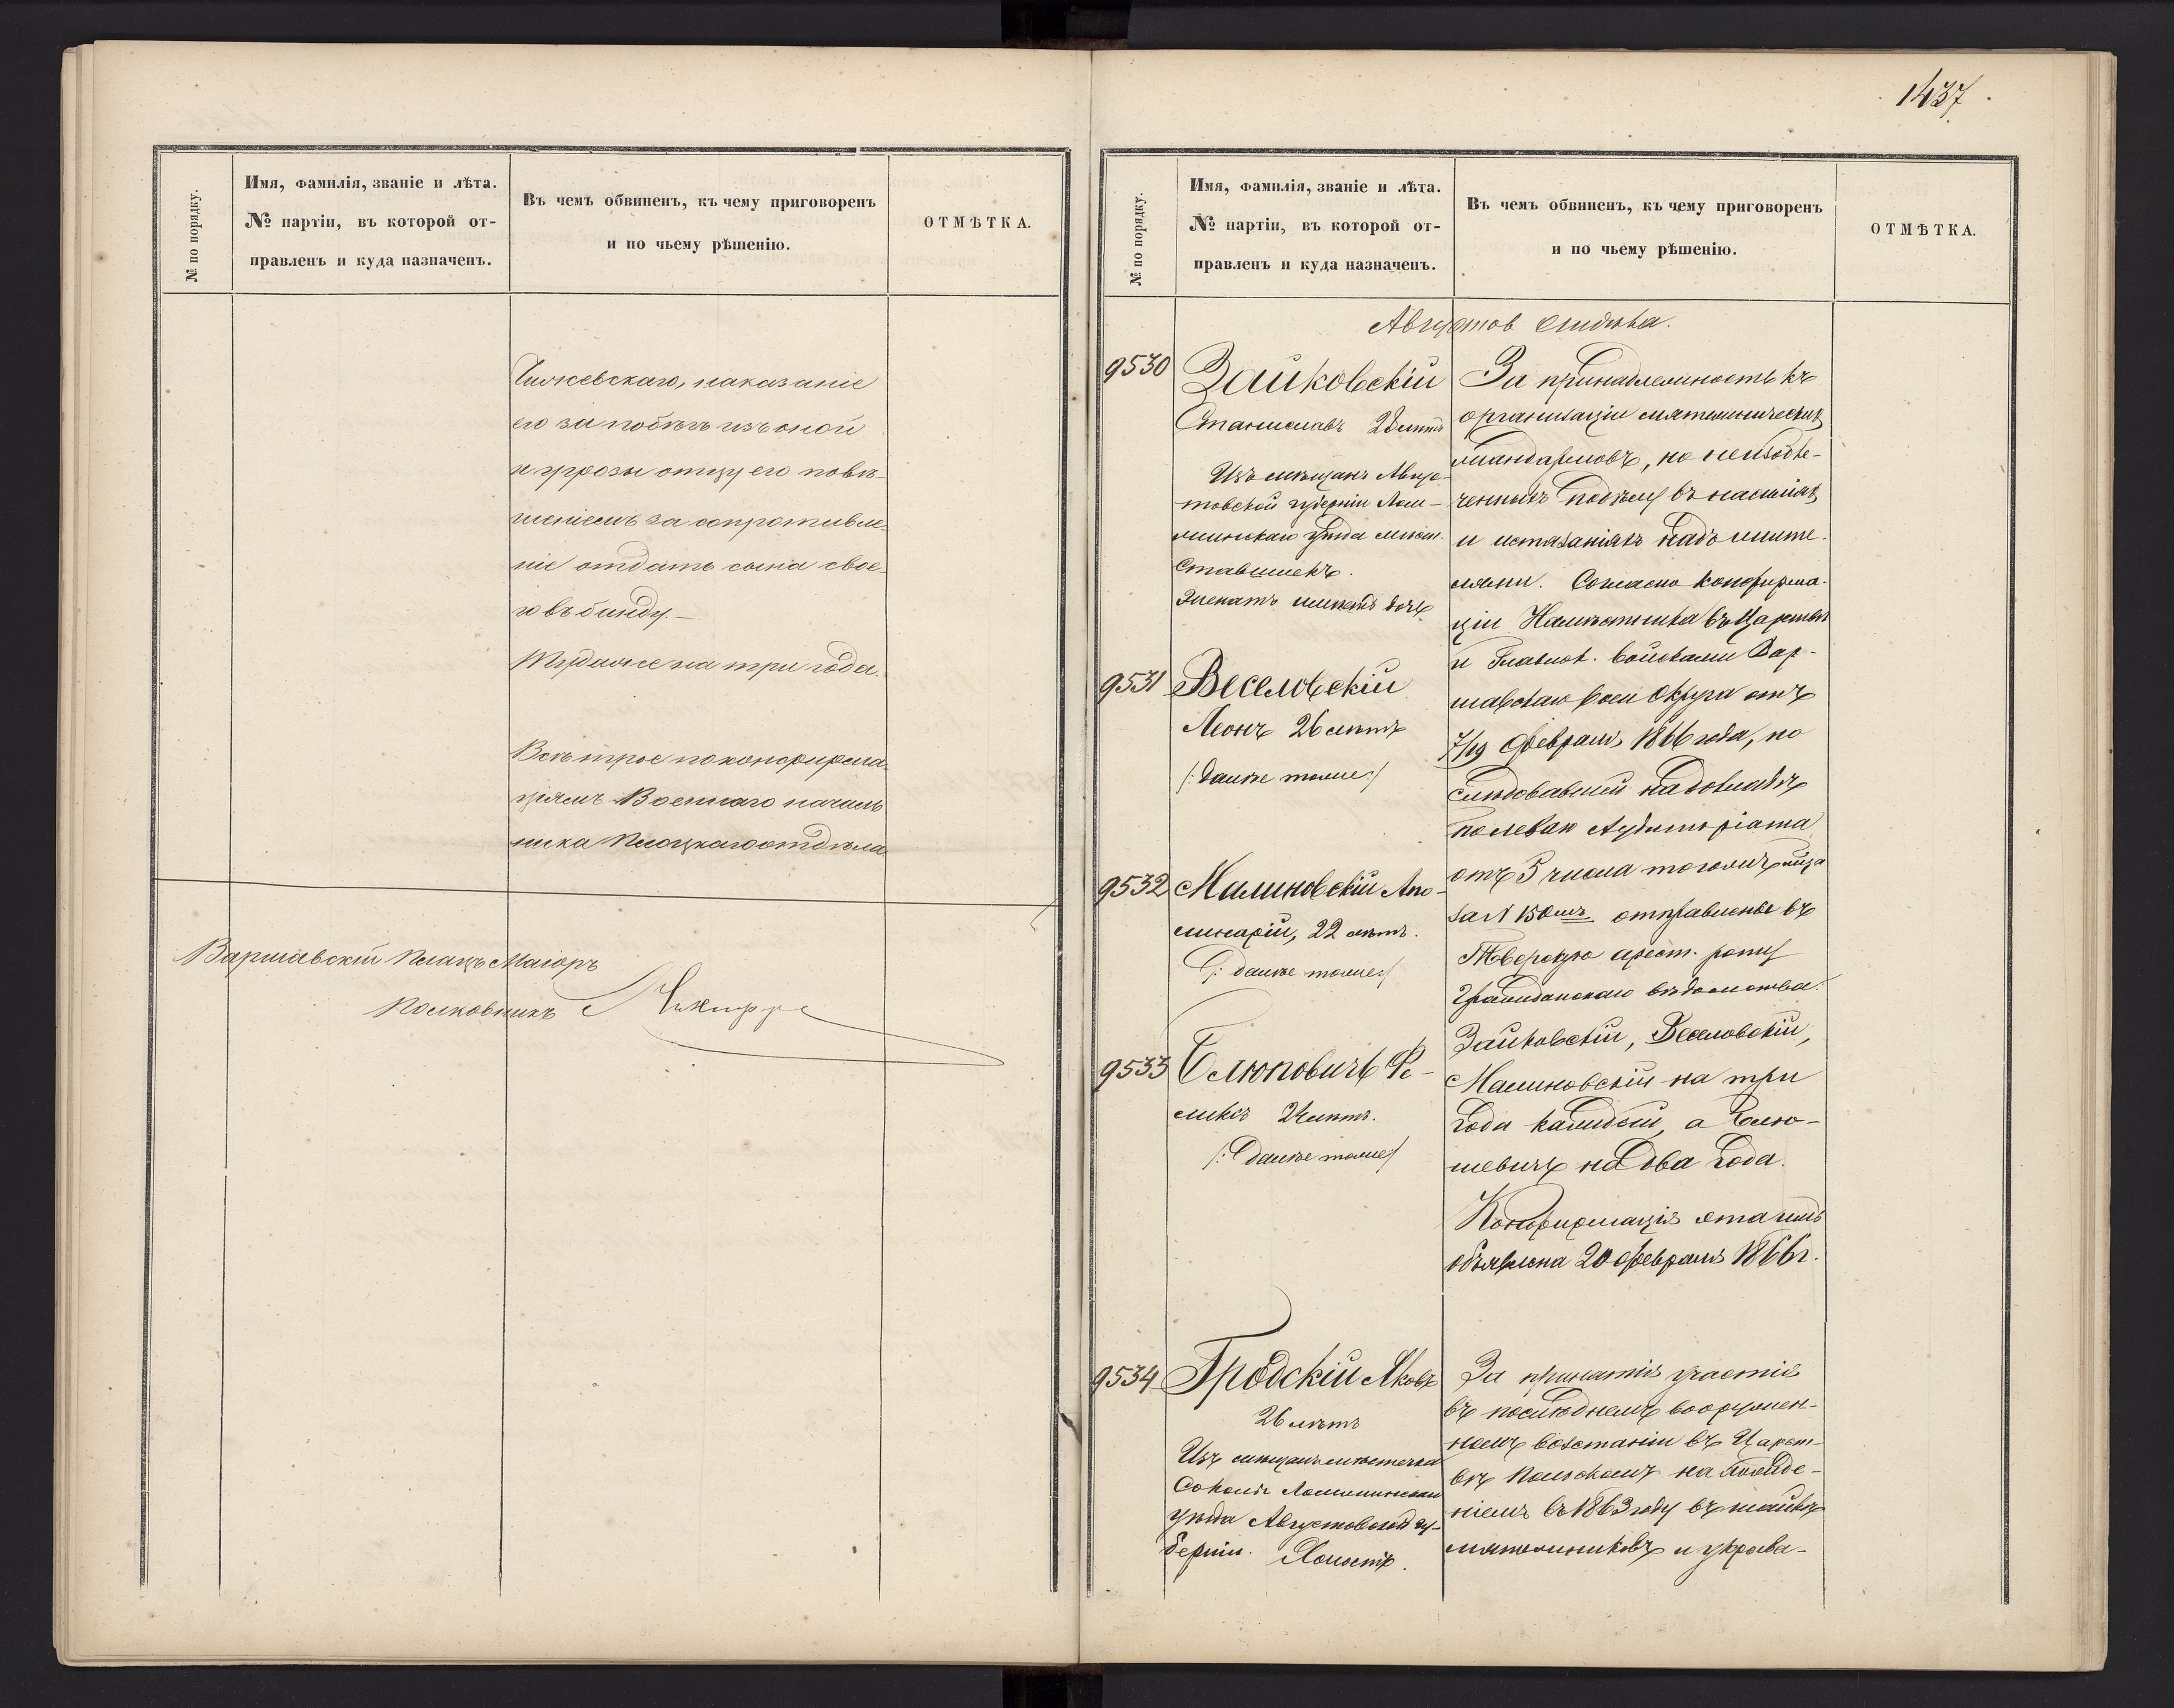 1437
№ по порядку.
Имя, фамилія, званіе и лѣта.
№ партіи, въ которой от-
правленъ и куда назначенъ.
Въ чемъ обвиненъ, къ чему приговоренъ
и по чьему рѣшенію.
ОТМѢТКА.
наказаніе
его за побѣгъ изъ оной
и угрозы отцу его повѣ-
шеніемъ за сопротивле-
ніе отдать сына свое-
го въ банду.—
на три года.
Всѣ трое по конфирма-
ціямъ Военнаго началь
ника Плоцкаго отдѣла
Варшавскій Плацъ Маіоръ
Полковникъ
№ по порядку.
Имя, фамилія, званіе и лѣта.
№ партіи, въ которой от-
правленъ и куда назначенъ.
Въ чемъ обвиненъ, къ чему приговоренъ
и по чьему рѣшенію.
ОТМѢТКА.
Августов
9530
Зайковскій
Станиславъ 28 лѣтъ
Изъ мѣщанъ Авгус-
товской губерніи Лом-
жинскаго уѣзда мѣст.
Ставискъ.
9531
Веселовскій
Леонъ 26 лѣтъ
/: далѣе тоже :/
9532
Малиновскій Апо-
линарій, 22 лѣтъ.
/: далѣе тоже :/
9533
Фе-
ликсъ лѣтъ.
/: далѣе тоже :/
За принадлежность къ
организаціи мятежническихъ
жандармовъ, но неизобли-
ченныхъ въ насиліяхъ
и истязаніяхъ надъ жите-
лями. Согласно конфирма-
ціи Намѣстника въ Царствѣ
и Главнок. войсками Вар-
шавскаго воен округа отъ
7/19 февраля 1866 года, по
слѣдовавшей на докладѣ
полеваго Аудиторіата
отъ 5 числа того же м-ца
за № 150мъ отправлены въ
Тверскую арест. роту
Гражданскаго вѣдомства:
Зайковскій, Веселовскій,
Малиновскій на три
года каждый, а
на два года.
Конфирмація эта имъ
объявлена 20 февраля 1866 г.
9534
Гродскій Яковъ
26 лѣтъ
Изъ мѣщанъ мѣстечка
Соколы Ломжинскаго
уѣзда Августовской гу-
берніи. Холостъ.
За принятіе участія
въ послѣднемъ вооружен-
номъ возстаніи въ Царст-
вѣ Польскомъ
въ 1863 году въ шайкѣ
мятежниковъ и укрыва-